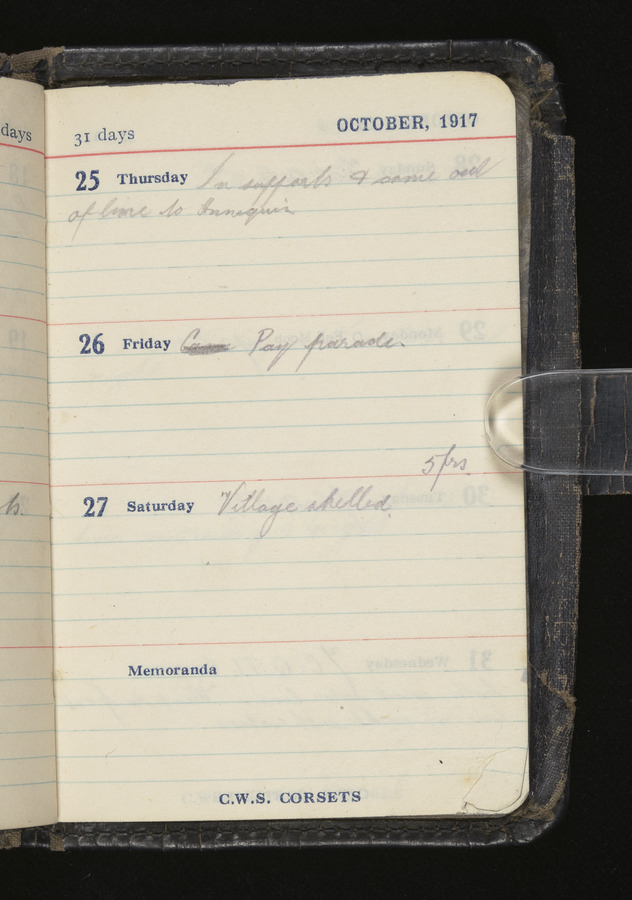 days
31 days OCTOBER, 1917
25 Thursday In supports & came out
of line to Annequin
26 Friday Pay parade.
5 frs
27 Saturday Village shelled.
Memoranda
C.W.S. CORSETS